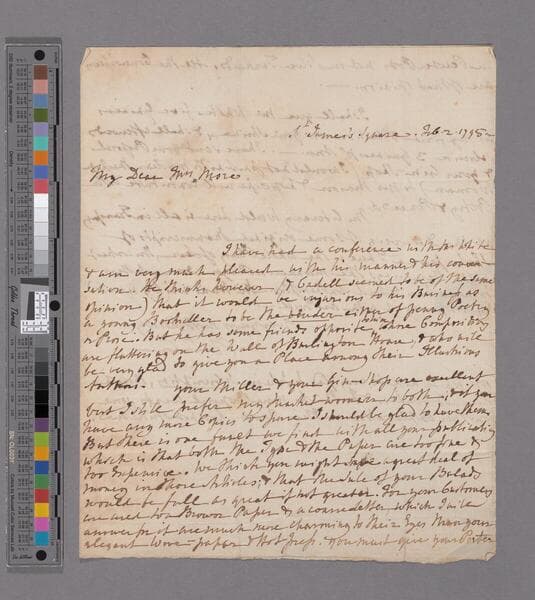 St. James's Square. Feb. 2 1795
My Dear Mrs More
I have had a conference with Mr White
& am very much pleased with his manner & his conver
sation. He thinks however (& Cadell seemed to be of the same
opinion) that it would be injurious to his Business as
a young Bookseller to be the Vender either of penny Poetry
or Prose. But he has some friends opposite, whose Compositions
are fluttering on the Wall of Burlington House, & who will
be very glad to give you a Place among their Illustrious
Authors. your Miller & your Gin-Shop are excellent
but I still prefer my Market woman to both, & if you
have any more Copies to spare I should be glad to have them
But there is one fault we find with all your publications
which is that both the Type & the Paper are too fine &
too Expensive. We think you might save a great deal of
money in those Articles, & that the Sale of your Ballads
would be full as great if not greater. For your Customers
are used to Brown Paper & a coarse letter which I will
answer for it are much more charming to their Eyes than your
elegant wove-paper & Hot press. You must give your